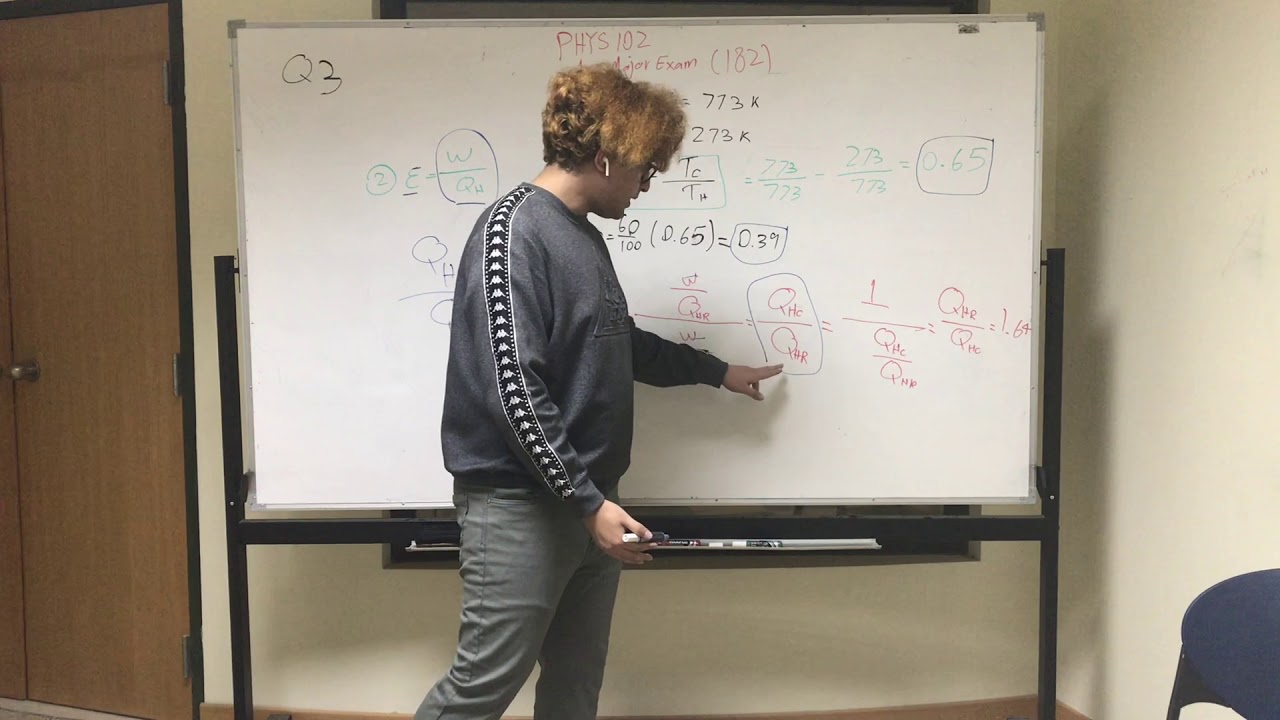 PHYS 102
Major Exam (182)
Q3
= 773 K
273 K
② ε = W / Q_H
T_C / T_H = 773/773 - 273/773 = 0.65
= 60/100 (0.65) = 0.39
Q_H
W / Q_HR / W = Q_HC / Q_HR = 1 / (Q_HC / Q_HR) = Q_HR / Q_HC = 1.64